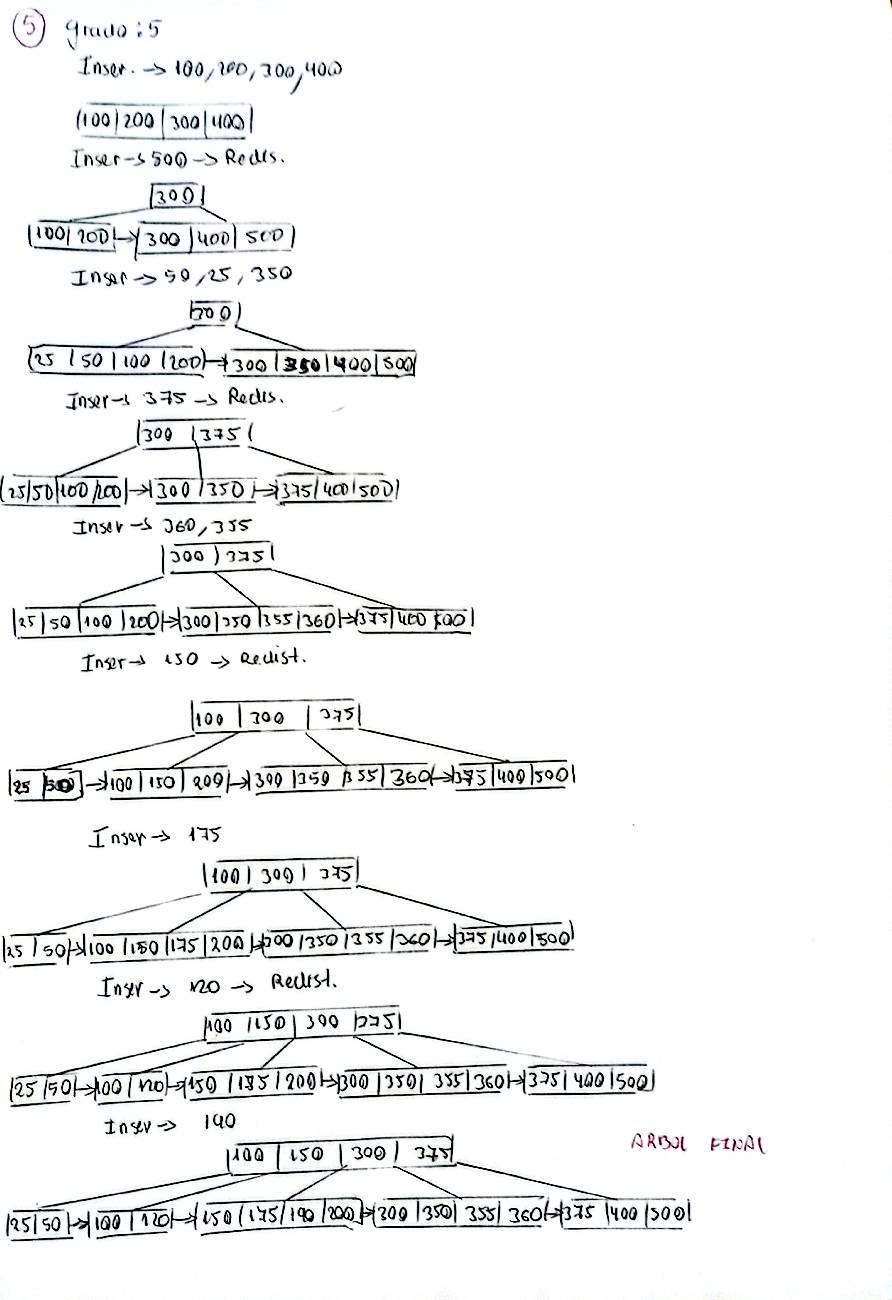 5 Grado: 5
Inser. → 100, 200, 300, 400
|100|200|300|400|
Inser → 500 → Redis.
|300|
|100|200| → |300|400|500|
Inser → 50, 25, 350
|300|
|25|50|100|200| → |300|350|400|500|
Inser → 375 → Redis.
|300|375|
|25|50|100|200| → |300|350| → |375|400|500|
Inser → 360, 355
|300|375|
|25|50|100|200| → |300|350|355|360| → |375|400|500|
Inser → 150 → Redist.
|100|300|375|
|25|50| → |100|150|200| → |300|350|355|360| → |375|400|500|
Inser → 175
|100|300|375|
|25|50| → |100|150|175|200| → |300|350|355|360| → |375|400|500|
Inser → 120 → Redist.
|100|150|300|375|
|25|50| → |100|120| → |150|175|200| → |300|350|355|360| → |375|400|500|
Inser → 190
ARBOL FINAL
|100|150|300|375|
|25|50| → |100|120| → |150|175|190|200| → |300|350|355|360| → |375|400|500|